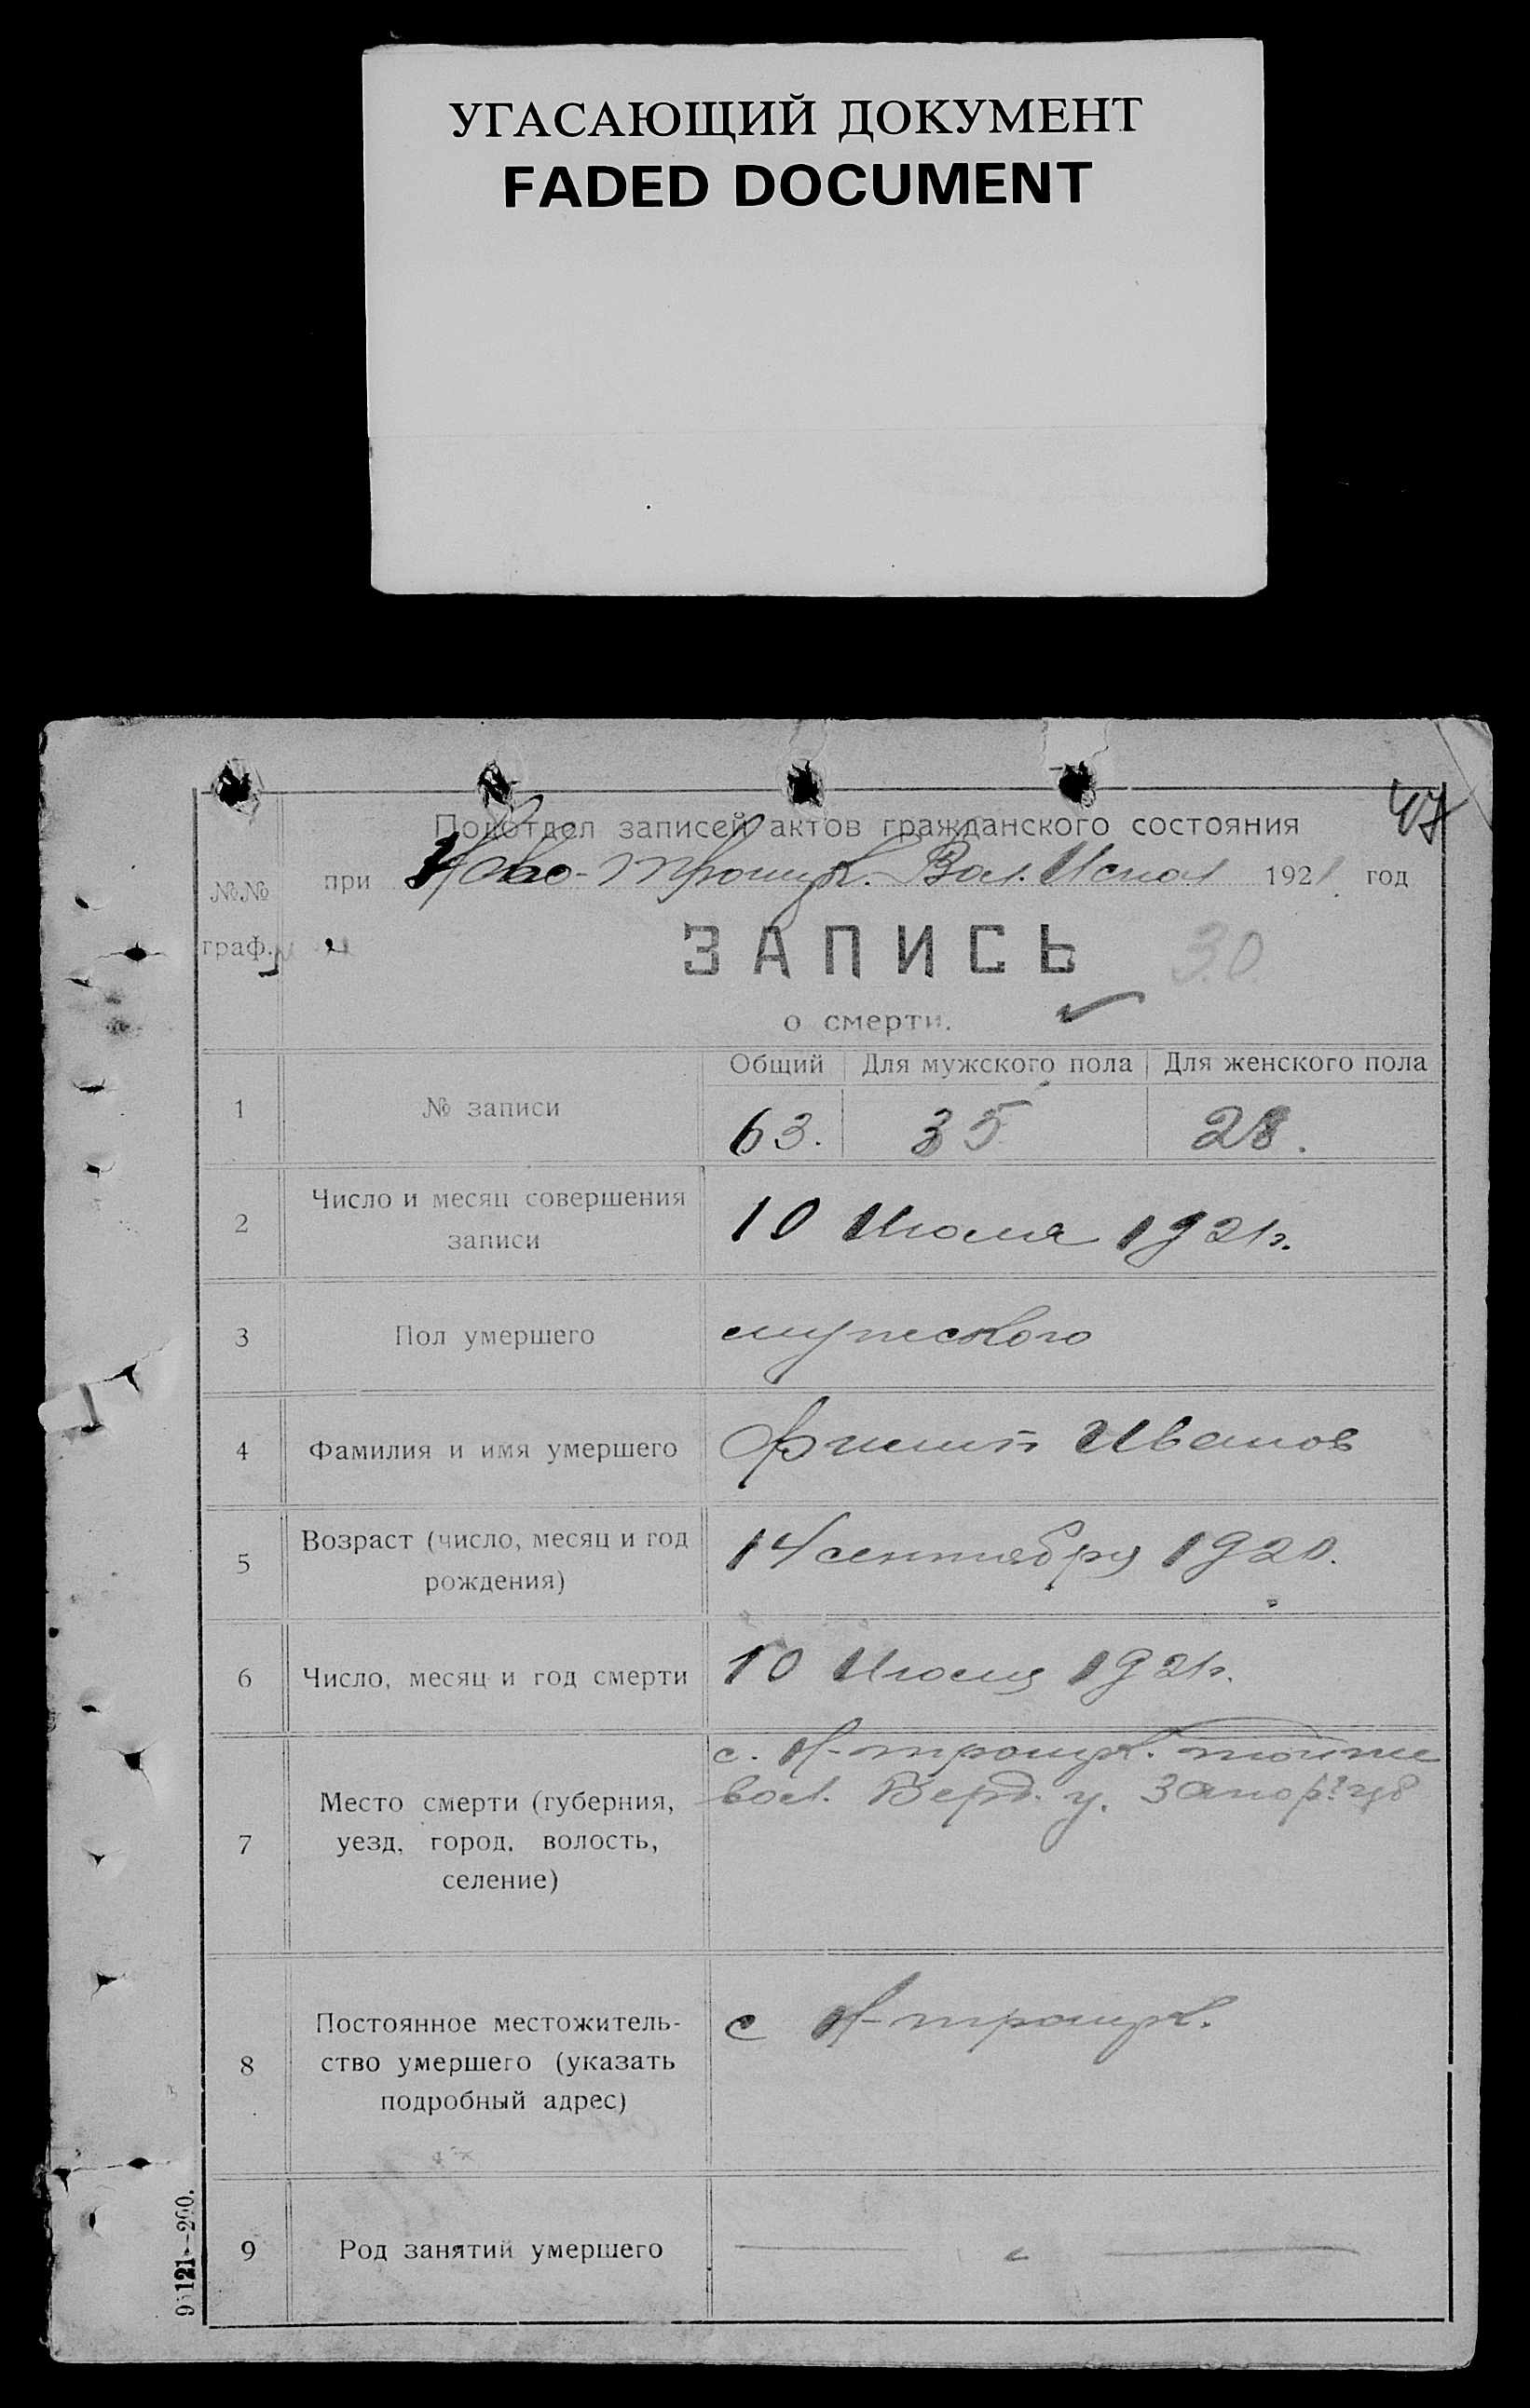 УГАСАЮЩИЙ ДОКУМЕНТ
FADED DOCUMENT
47
Подотдел записей актов гражданского состояния
№№ граф.
при Ново-Троицк. Вол. Испол 1921 год
ЗАПИСЬ 30
о смерти.
Общий Для мужского пола Для женского пола
1 № записи 63. 35 28.
2 Число и месяц совершения записи 10 Июля 1921г.
3 Пол умершего мужеского
4 Фамилия и имя умершего Филип Иванов
5 Возраст (число, месяц и год рождения) 14 сентября 1920.
6 Число, месяц и год смерти 10 Июля 1921г.
7 Место смерти (губерния, уезд, город, волость, селение) с. Н-троицк. тойже
вол. Берд. у. Запор.
8 Постоянное местожитель-
ство умершего (указать
подробный адрес) с Н-троицк.
9 Род занятий умершего
121--200.